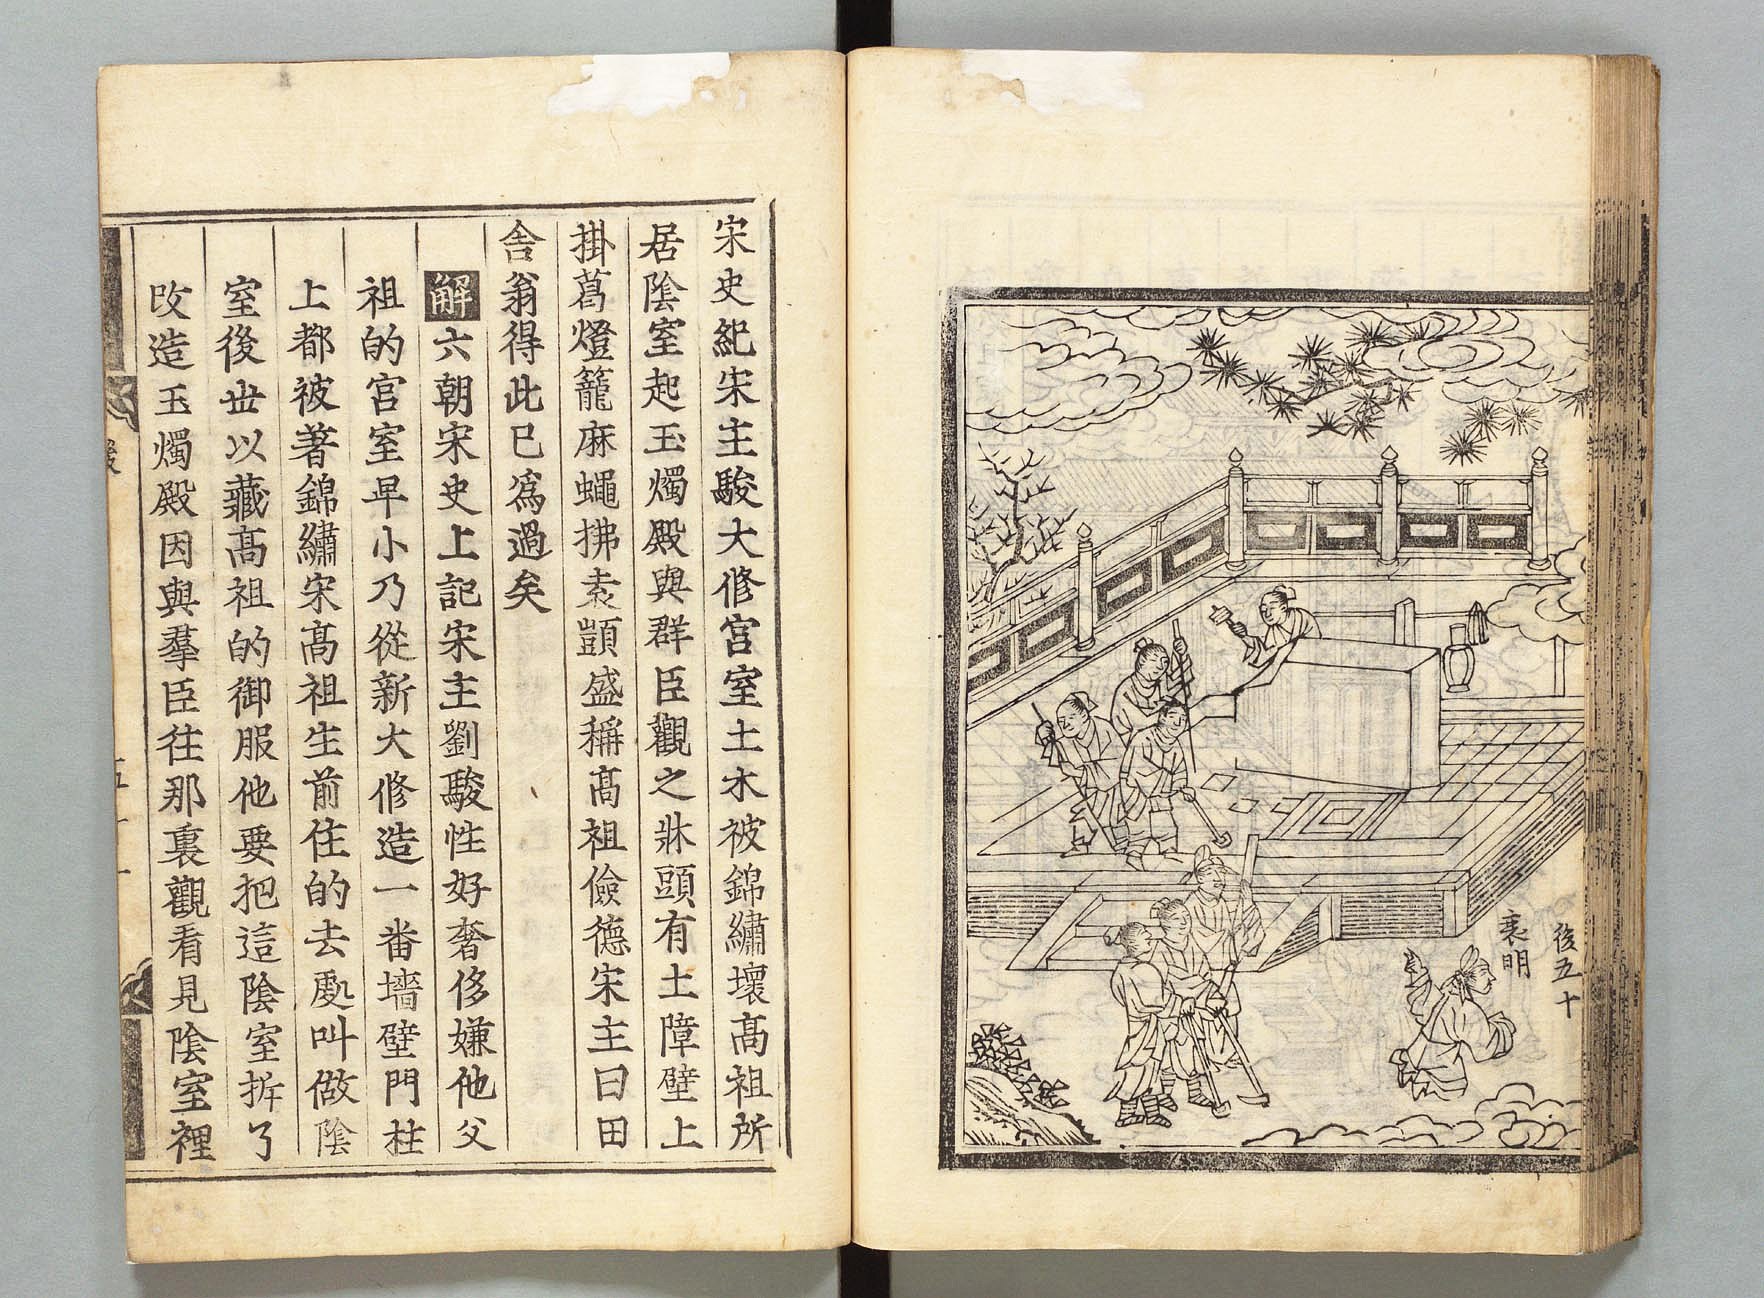 後五十
裵明
宋史紀宋主駿大修宮室土木被錦繡壞高祖所
居陰室起玉燭殿與群臣觀之牀頭有土障壁上
掛葛燈籠麻蠅拂袁顗盛稱高祖儉德宋主曰田
舍翁得此已爲過矣
解六朝宋史上記宋主劉駿性好奢侈嫌他父
祖的宮室早小乃從新大修造一番墻壁門柱
上都被著錦繡宋高祖生前住的去處叫做陰
室後世以藏高祖的御服他要把這陰室拆了
改造玉燭殿因與羣臣往那裏觀看見陰室裡
後
五十一